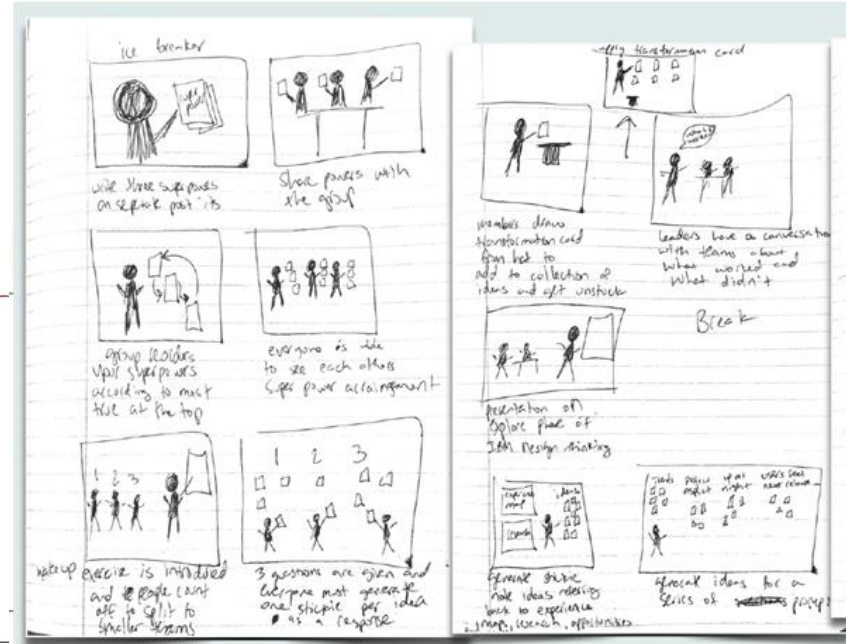 ice breaker
super power
write three super powers
on seperate post its
Share powers with
the group
group reorders
superpowers
according to most
true at the top
everyone is able
to see each others
super power arraingement
1 2 3
1 2 3
wakeup exercise is introduced
and people count
off to split to
smaller teams
3 questions are given and
everyone must generate
one stickie per idea
as a response
apply transformation card
members draw
transformation card
from hat to
add to collection of
ideas and get unstuck
what
worked
leaders have a conversation
with teams about
what worked and
what didn't
Break
presentation on
explore phase of
IBM Design thinking
map
research
ideas
generate stickie
note ideas refering
back to experience
map, research, opportunities
project
aspect
up at
night
users
generate ideas for a
series of